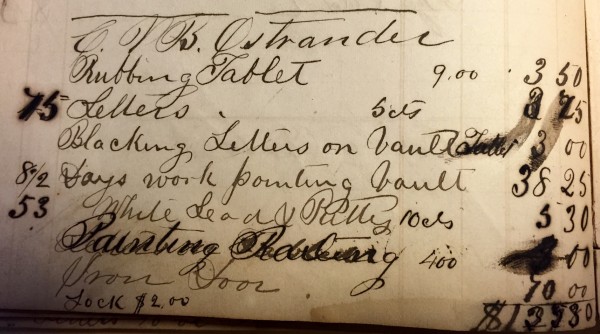 C. V. B. Ostrander
Rubbing Tablet 9.00 3 50
75 Letters 5cts 3 75
Blacking Letters on Vault Tablet 3 00
8½ Days work pointing Vault 38 25
53 White Lead & Putty 10cts 5 30
Painting Railing 400 00
Iron Door 70 00
Lock $2.00